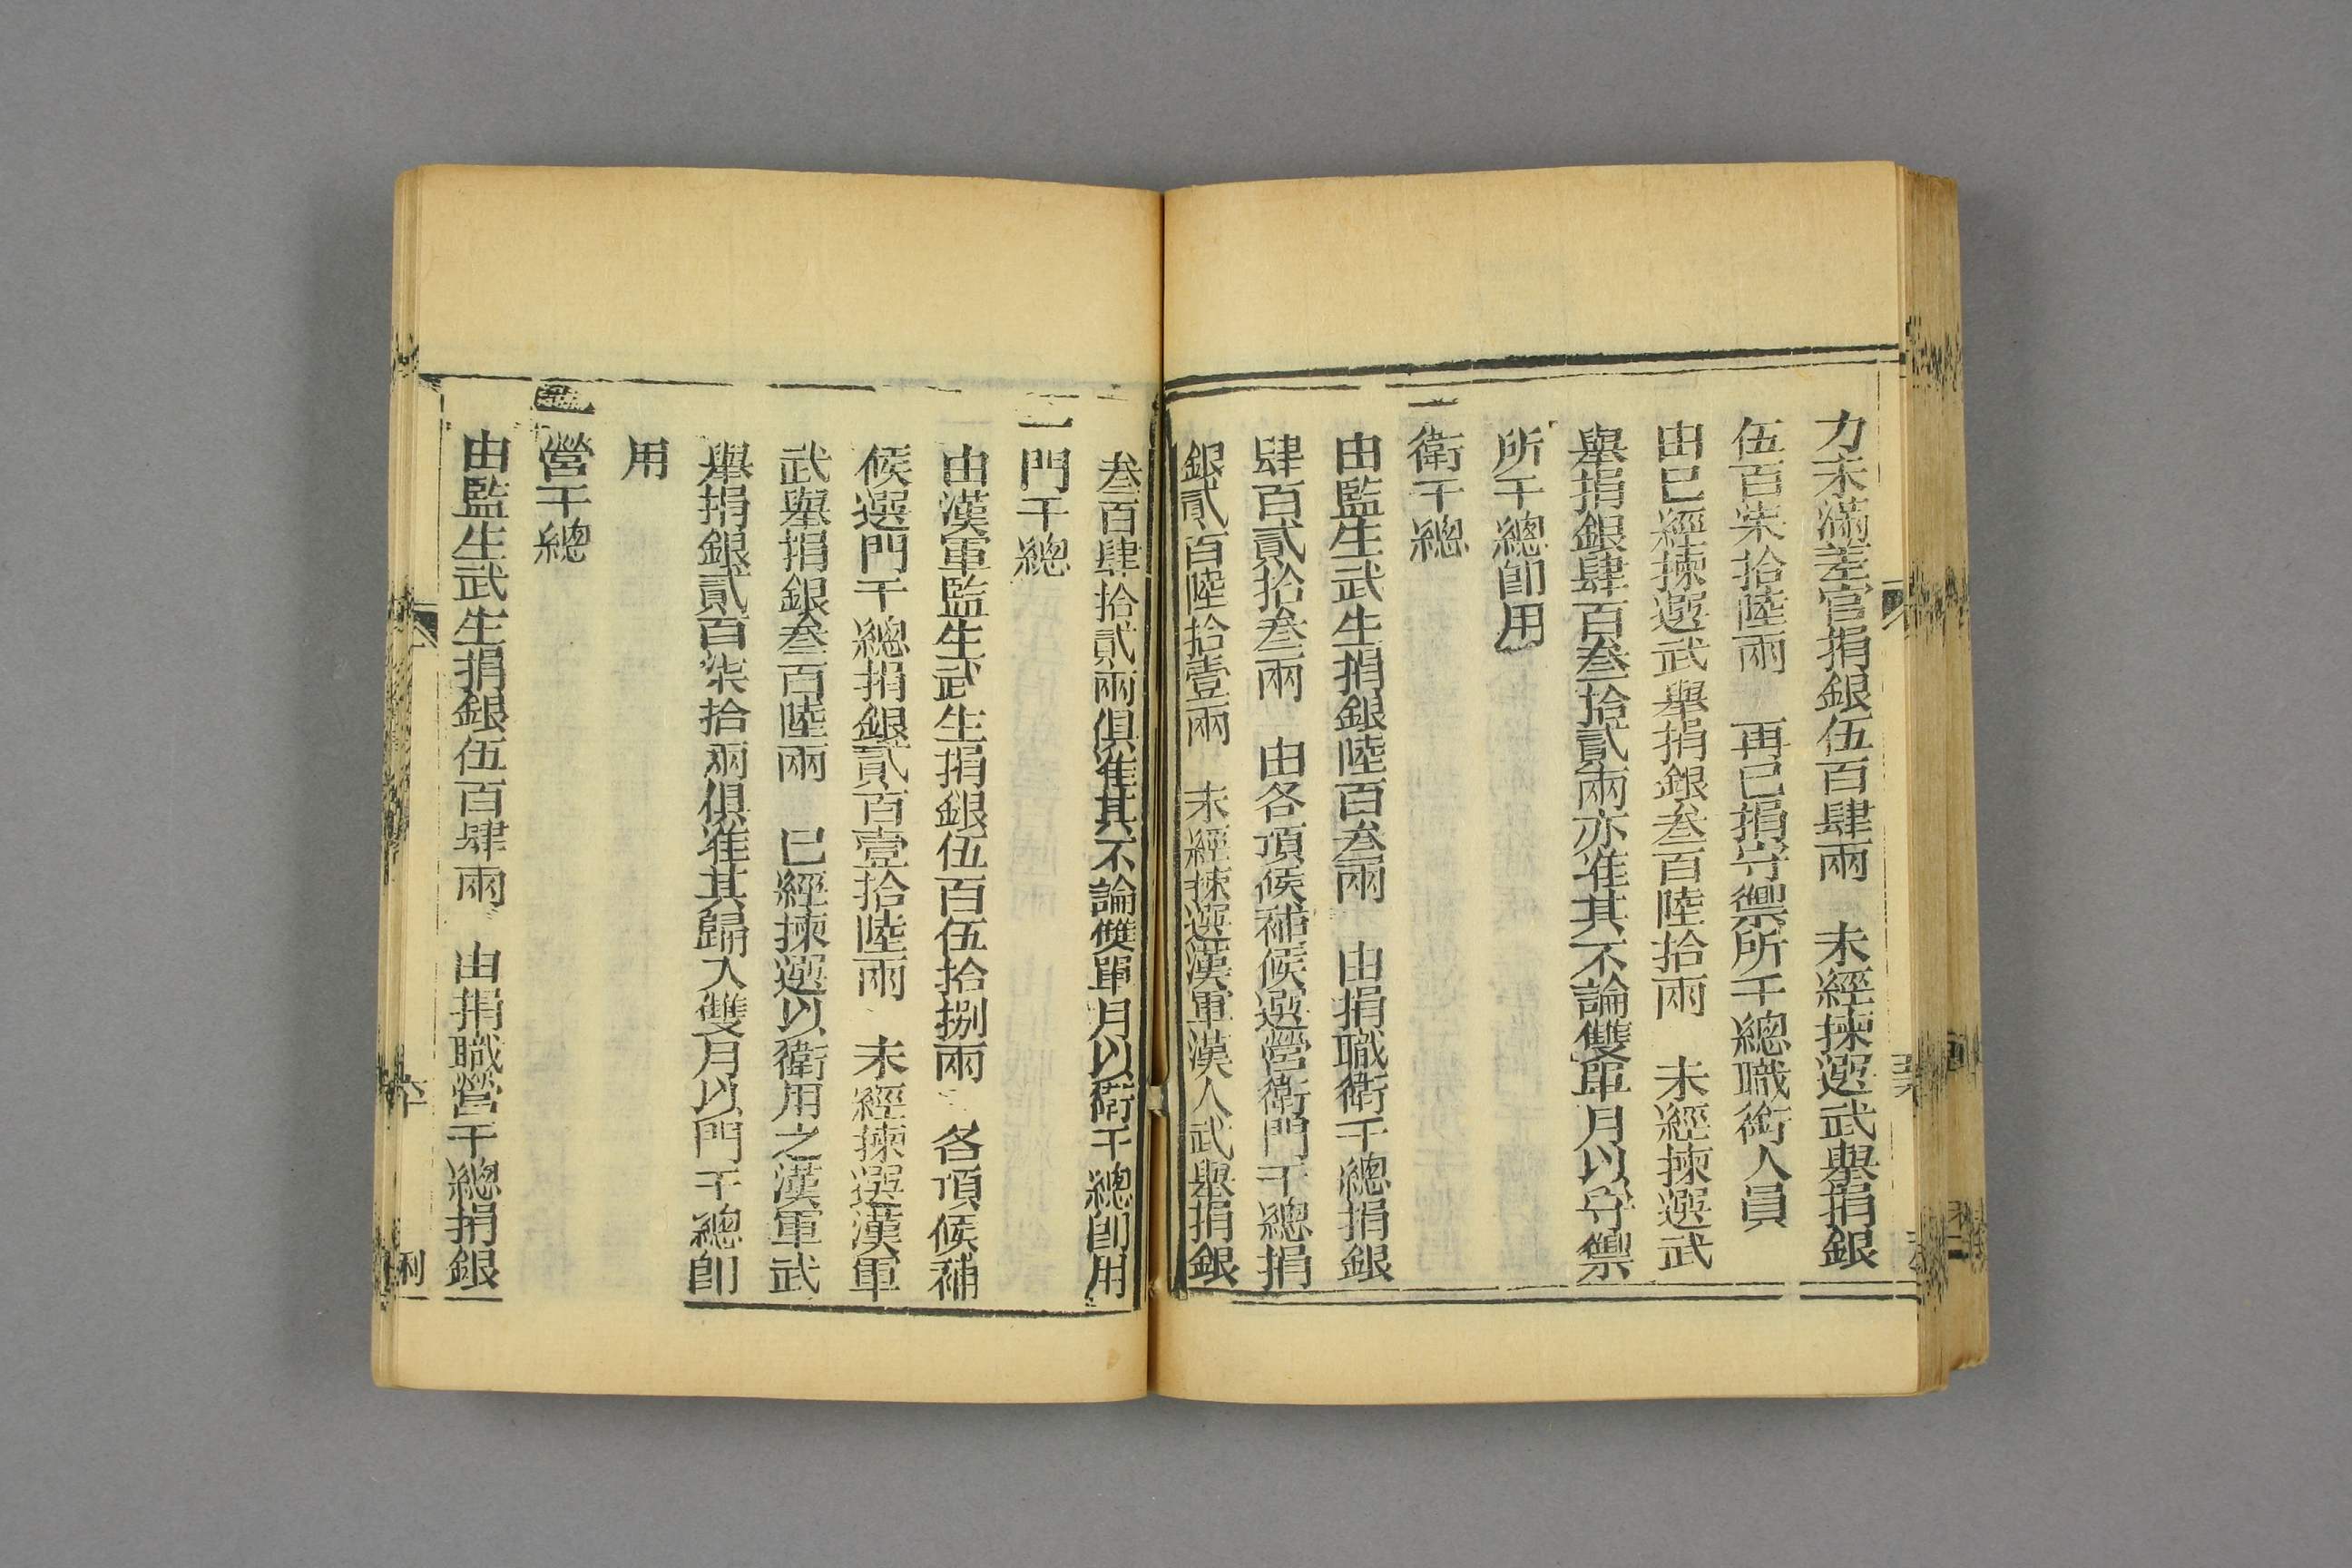 力未滿差官捐銀伍百肆兩　未經揀選武舉捐銀
伍百柒拾陸兩　再已捐守禦所千總職銜人員
由已經揀選武舉捐銀叁百陸拾兩　未經揀選武
舉捐銀肆百叁拾貳兩亦准其不論雙單月以守禦
所千總卽用
一衛千總
由監生武生捐銀陸百叁兩　由捐職衛千總捐銀
肆百貳拾叁兩　由各項候補候選營衛門千總捐
銀貳百陸拾壹兩　未經揀選漢軍漢人武舉捐銀
叁百肆拾貳兩俱准其不論雙單月以衛千總卽用
一門千總
由漢軍監生武生捐銀伍百伍拾捌兩　各項候補
候選門千總捐銀貳百壹拾陸兩　未經揀選漢軍
武舉捐銀叁百陸兩　已經揀選以衛用之漢軍武
舉捐銀貳百柒拾兩俱准其歸入雙月以門千總卽
用
營千總
由監生武生捐銀伍百肆兩　由捐職營千總捐銀